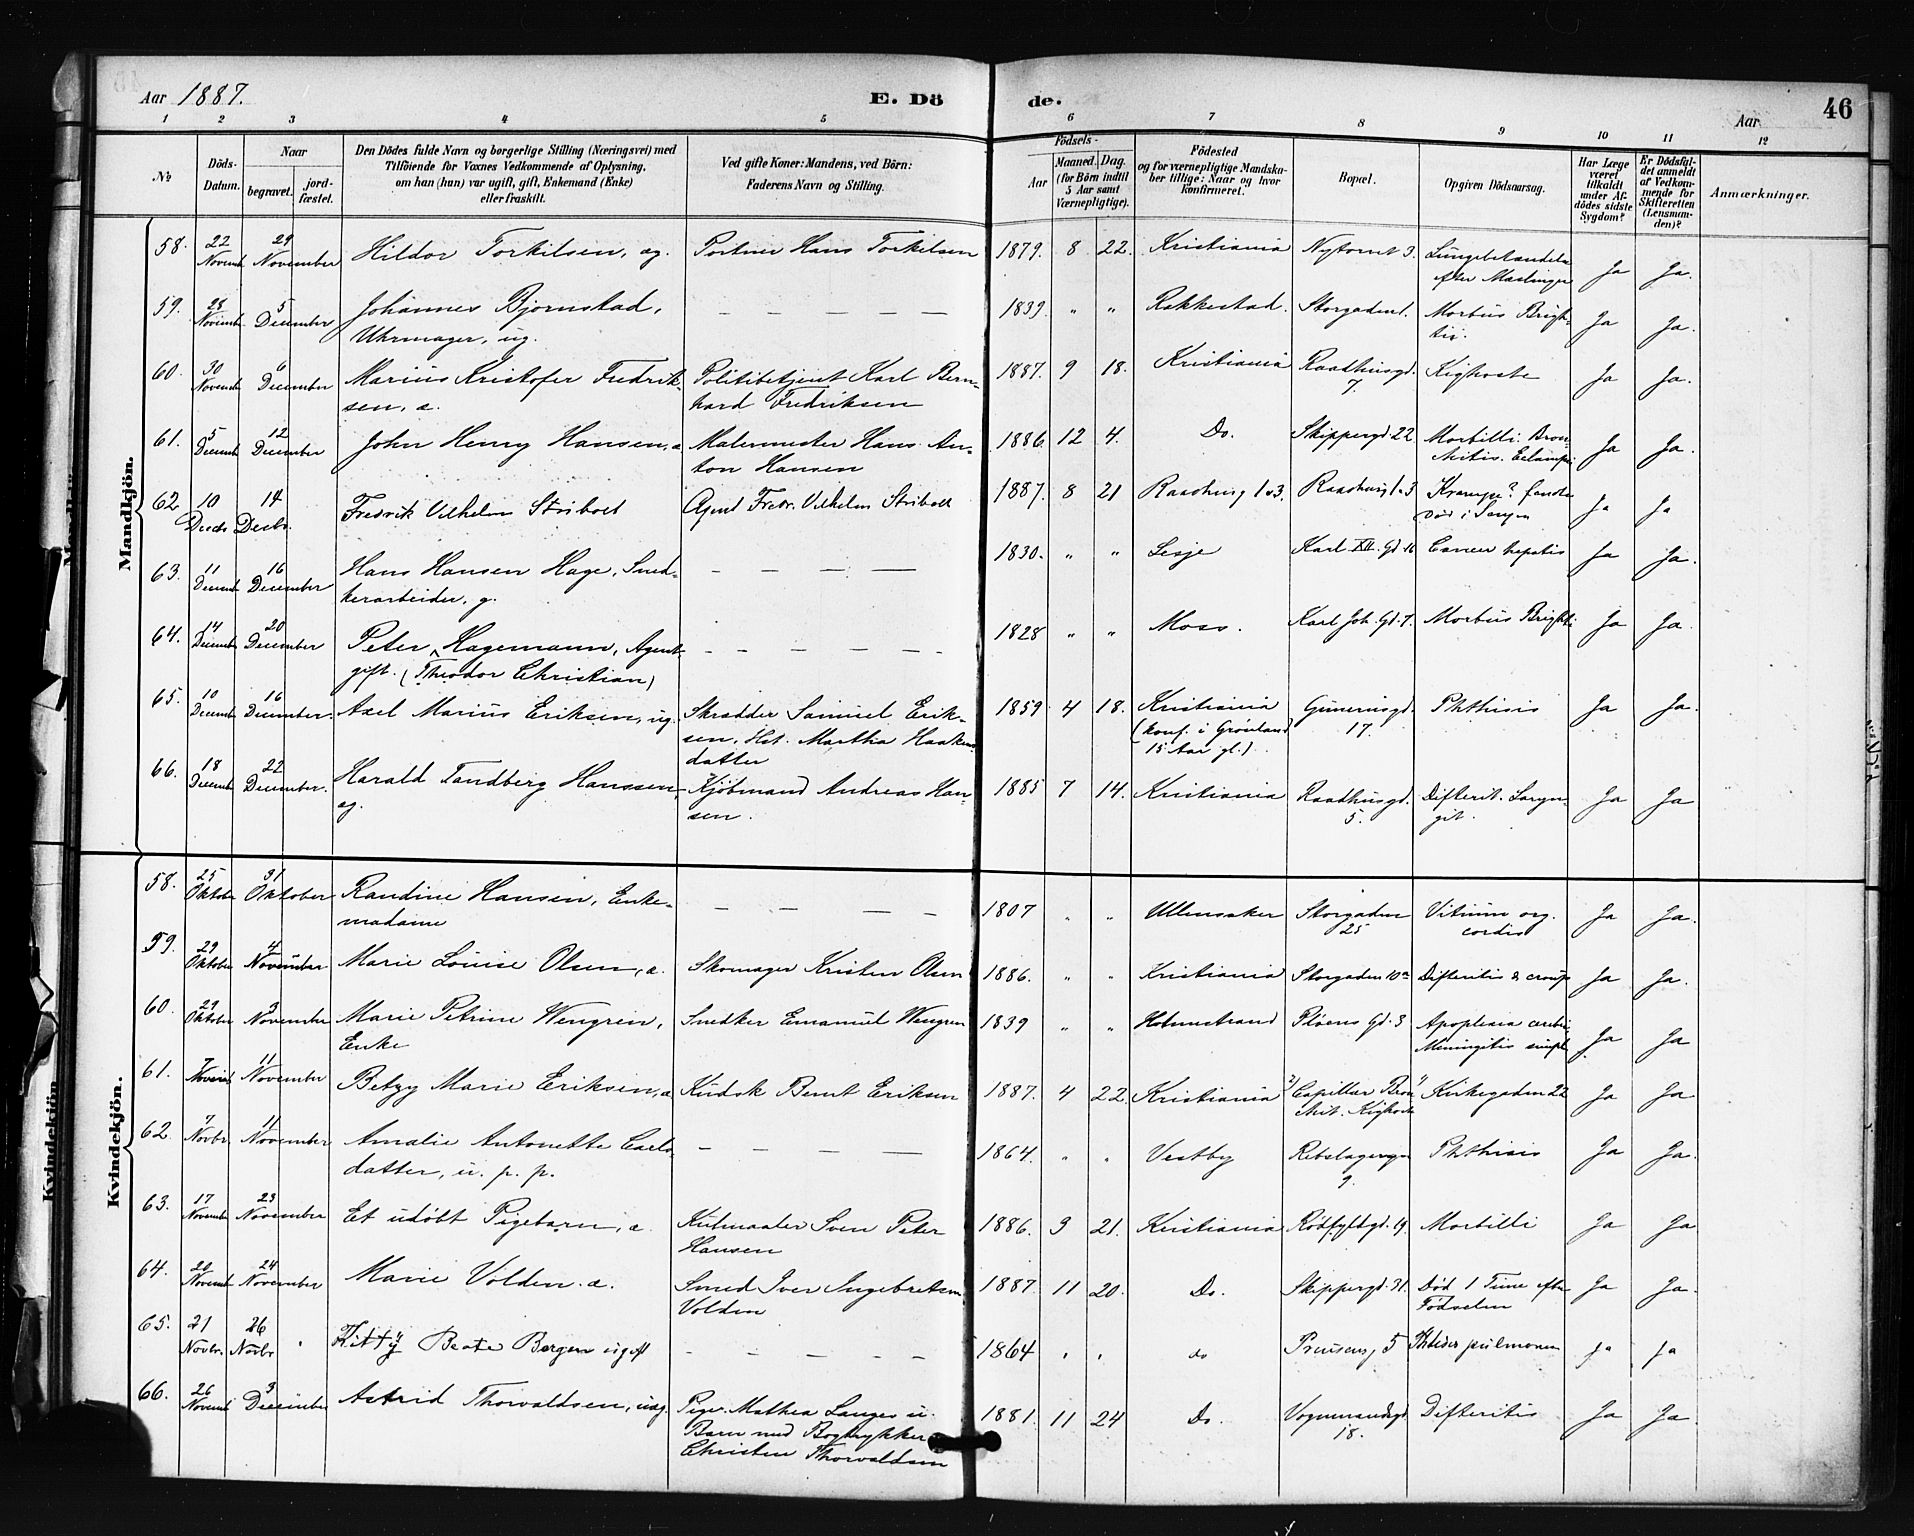 Aar 1887.
E. Dö
de.
Aar
46
1 2 3 4 5 6 7 8 9 10 11 12
No
Döds-Datum.
Naar
begravet.
jord-fæstet.
Den Dödes fulde Navn og borgerlige Stilling (Næringsvei) med
Tilföiende for Voxnes Vedkommende af Oplysning,
om han (hun) var ugift, gift, Enkemand (Enke)
eller fraskilt.
Ved gifte Koner: Mandens, ved Börn:
Faderens Navn og Stilling.
Födsels-
Aar
Maaned. Dag.
(for Börn indtil
5 Aar samt
Værnepligtige).
Födested
og for værnepligtige Mandska-
ber tillige: Naar og hvor
konfirmeret.
Bopæl.
Opgiven Dödsaarsag.
Har Læge
været
tilkaldt
under Af-
dödes sidste
Sygdom?
Er Dödsfal-
det anmeldt
af Vedkom-
mende for
Skifteretten
(Lensman-
den)?
Anmærkninger.
Mandkjön.
58. 22 Novemb 29 November Hildor Torkilsen, ag. Portner Hans Torkilsen 1879. 8 22. Kristiania Nytorvet 3. Lungebetændelse efter Mæslinger Ja Ja.
59. 28 Novemb. 5 December Johannes Bjornstad, Uhrmager, ug. — — — — — 1839. " " Rakkestad. Storgaden 1. Morbus Brigh-tii. Ja Ja.
60. 30 Novemb 6 December Marius Kristofer Fredrik-sen, a. Politibetjent Karl Bern-hard Fredriksen 1887. 9 18. Kristiania Raadhusgd. 7. Kighoste Ja Ja.
61. 5 Decemb 12 December John Henry Hansen, a Malermester Hans An-ton Hansen 1886. 12 4. Do. Skippergd 22. Morbilli. Bron-chitis. Eclampsi Ja Ja.
62 10 Decbr 14 Decbr. Fredrik Vilhelm Stribolt Agent Fredr. Vilhelm Stribolt 1887. 8 21 Raadhusg 1 & 3. Raadhusg 1 & 3 Krampe? fandtes død i Sengen Ja Ja
63. 11 Decemb 16 December Hans Hansen Hage, Sned-kerarbeider, g. — — — — 1830. " " Lesje Karl XII. Gd 16 Cancer hepatis Ja Ja.
64. 14 Decemb 20 December Peter ^ Hagemann, Agent, gift. (Theodor Christian) — — — — — 1828 " " Moss. Karl Joh. Gd. 7. Morbus Brightii Ja Ja.
65. 10 Decemb 16 December. Axel Marius Eriksen, ug. Skrædder Samuel Erik-sen, Hst. Martha Haakens datter 1859 4 18. Kristiania (konf. i Grønland 15 Aar gl.) Gunerusgd. 17. Phthisis Ja Ja.
66. 18 Decemb 22 December. Harald Tandberg Hanssen, ag. Kjöbmand Andreas Han-sen. 1885 7 14. Kristiania Raadhusgd. 5. Difterit. Laryn-git. Ja Ja
Kvindekjön.
58. 25 Oktober 31 Oktober Randine Hansen, Enke-madame — — — — 1807 " " Ullensaker Storgaden 25 Vitium org. cordis Ja Ja.
59. 29 Oktober 4 November Marie Louise Olsen, a. Skomager Kristen Olsen 1886. " " Kristiania Storgaden 10a Difteritis & croup Ja Ja.
60. 29 Oktober 3 November Marie Petrine Wengren, Enke Snedker Emanuel Wengren 1839 " " Holmestrand Pløens Gd. 3 Apoplexia cerebri, Meningitis simpl. Ja Ja
61. 7 Novemb 11 November Betzy Marie Eriksen, a Kudsk Bernt Eriksen 1887. 4 22. Kristiania 2) Capillær Bron-chit. Kighoste 1) Kirkegaden 22 Ja Ja
62. 7 Novbr. 11 November Amalie Antonette Carls-datter, u. p. p. — — — — 1864. " " Vestby Rebslagergn 9. Phthisis Ja Ja.
63. 17 Novemb 23 November Et udöbt Pigebarn, a. Kulmaaler Sven Peter Hansen 1886. 9 21. Kristiania Rødfyldgd. 19. Morbilli Ja Ja
64. 20 Novemb 24 November Marie Volden. a. Smed Iver Ingebretsen Volden 1887. 11 20. Do. Skippergd. 31. Død 1 Time efter Fødselen Ja Ja.
65. 21 Novbr. 26 Novbr " Kitty Beate Bergen ugift — — — — — 1864 " " do Preusensg 5 Phtisis pulmonum Ja Ja
66. 26 Novemb 3 December Astrid Thorvaldsen, uæg. Pige Mathea Langes u. Barn med Bogtrykker Christen Thorvaldsen 1881. 11 24 Do. Vognmandsgd. 18. Difteritis Ja Ja.
Kvindekjön.